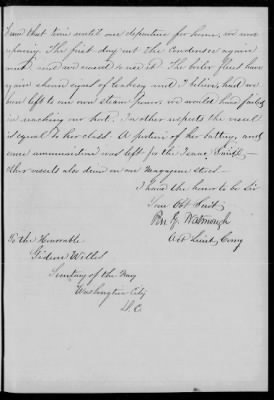 From that time until our departure for home, we were
repairing. The first day out the Condenser again
and we ceased to use it. The boiler flues have
again shown signs of leaking and I believe, had we
been left to our own steam power, we would have failed
in reaching our port. In other respects the vessel
is equal to her class. A portion of her battery, and
some ammunition was left for the "Isaac Smith,"—
other vessels also drew on our Magazine Stores—
I have the honor to be Sir
Your Obt Servt
Pen G. Watmough
Act Lieut, Comg
To the Honorable
Gideon Welles
Secretary of the Navy
Washington City
D.C.